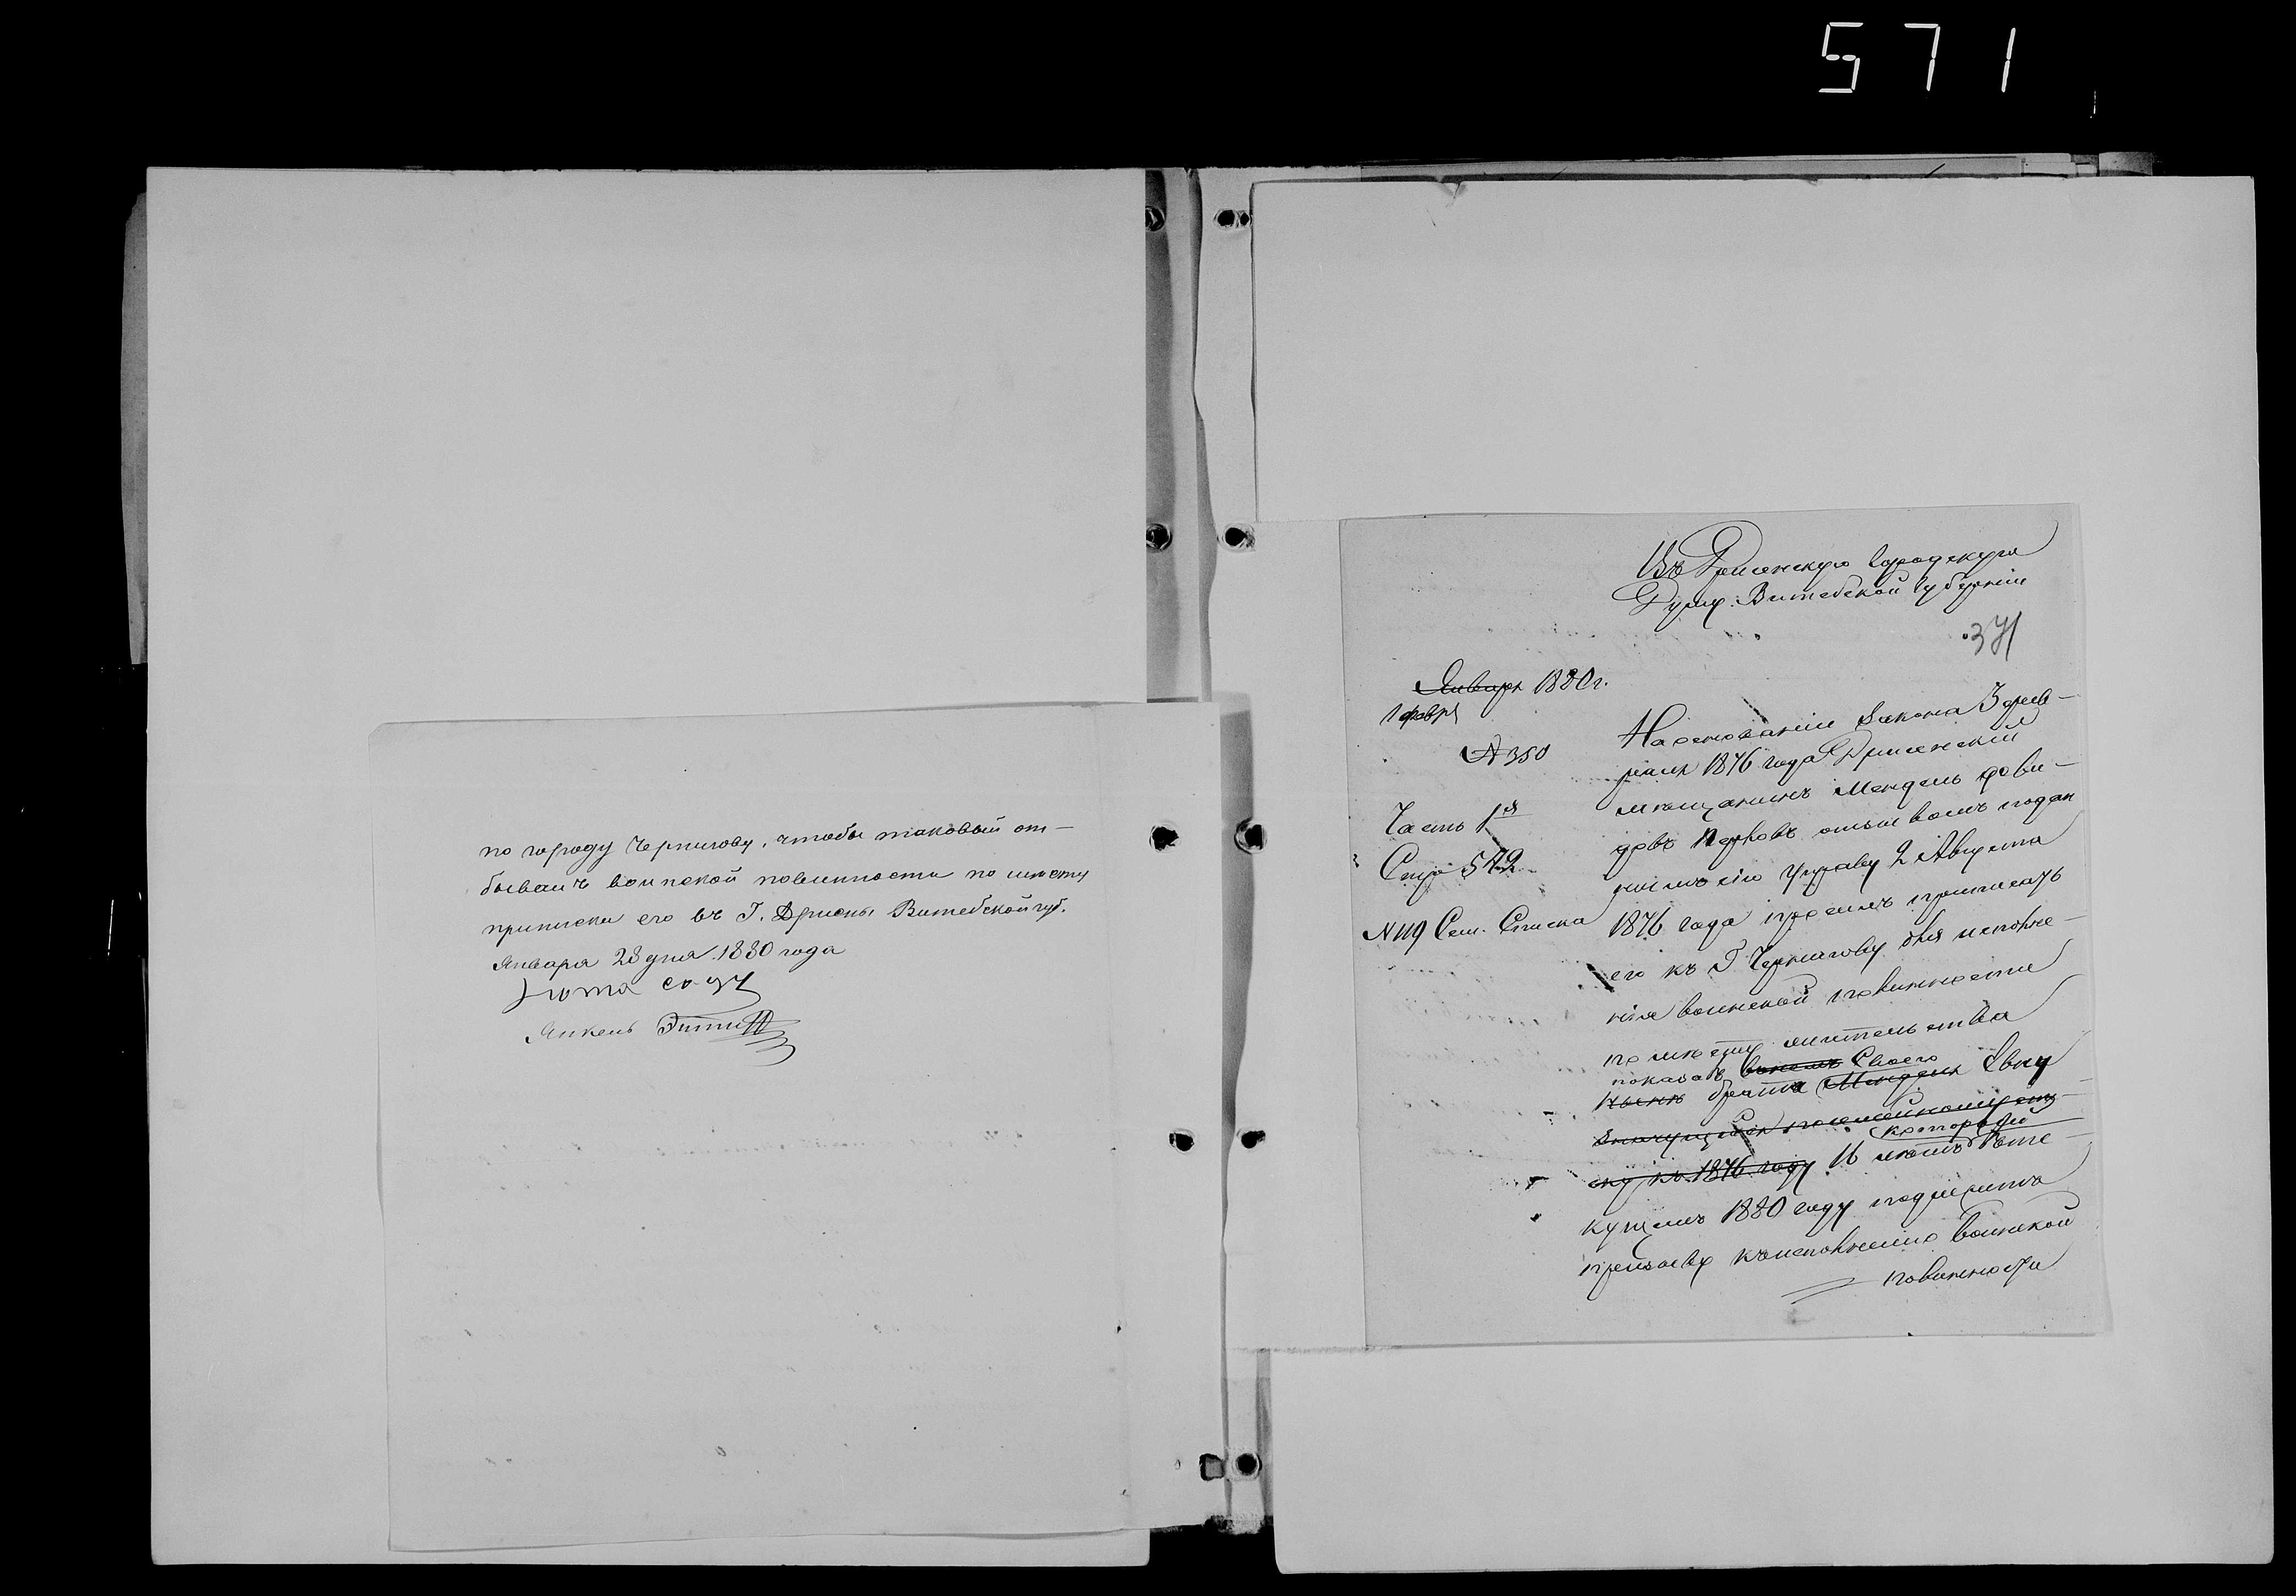 571
по городу Чернигову, чтобы таковый от-
бывалъ воинской повинности по месту
приписки его въ Г. Дрисны Витебской губ.
Января 28 дня 1880 года
Янкель
Въ Дрисенскую Городскую
Думу Витебской Губернии
371
Января 1880 г.
1 февр
№ 350
Часть 1я
Стр 542
№ 119 Сем. Списка
На основании Закона 3 фев-
раля 1876 года Дрисенский
мещанинъ Мендель Дови-
довъ отзывомъ подан
нымъ въ сию Управу 2 Августа
1876 года просилъ приписать
его къ Г Чернигову для исполне-
ния воинской повинности
по месту жительства
показавъ Своего
брата Менделя Евну
который
къ 1876 году 16 летъ вте-
кущемъ 1880 году подлежитъ
призыву къ исполнению воинской
повинности